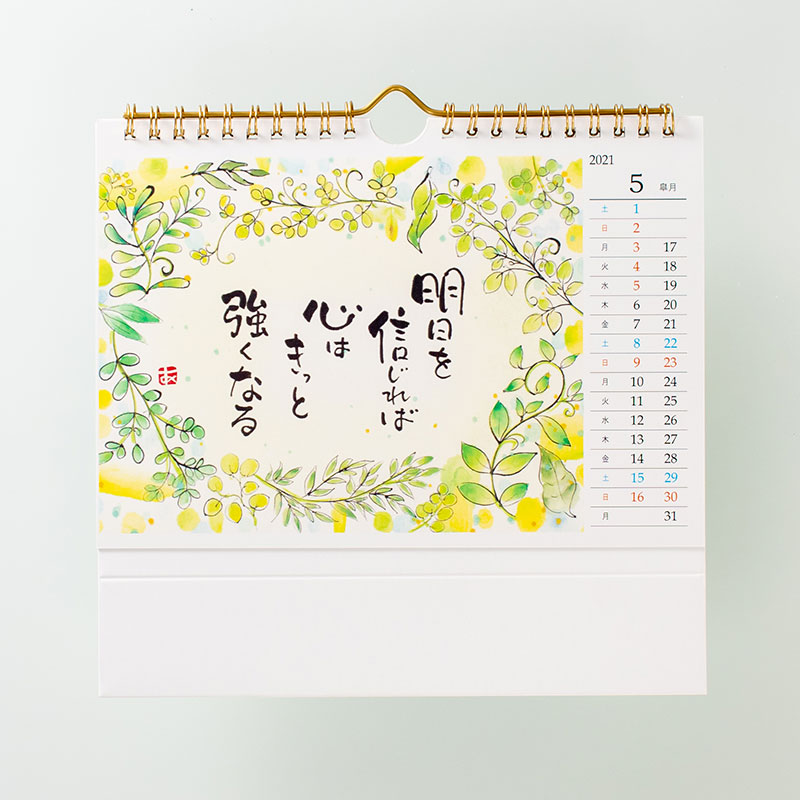 明日を
信じれば
心は
きっと
強くなる
あ
2021
5 皐月
土 1
日 2
月 3 17
火 4 18
水 5 19
木 6 20
金 7 21
土 8 22
日 9 23
月 10 24
火 11 25
水 12 26
木 13 27
金 14 28
土 15 29
日 16 30
月 31